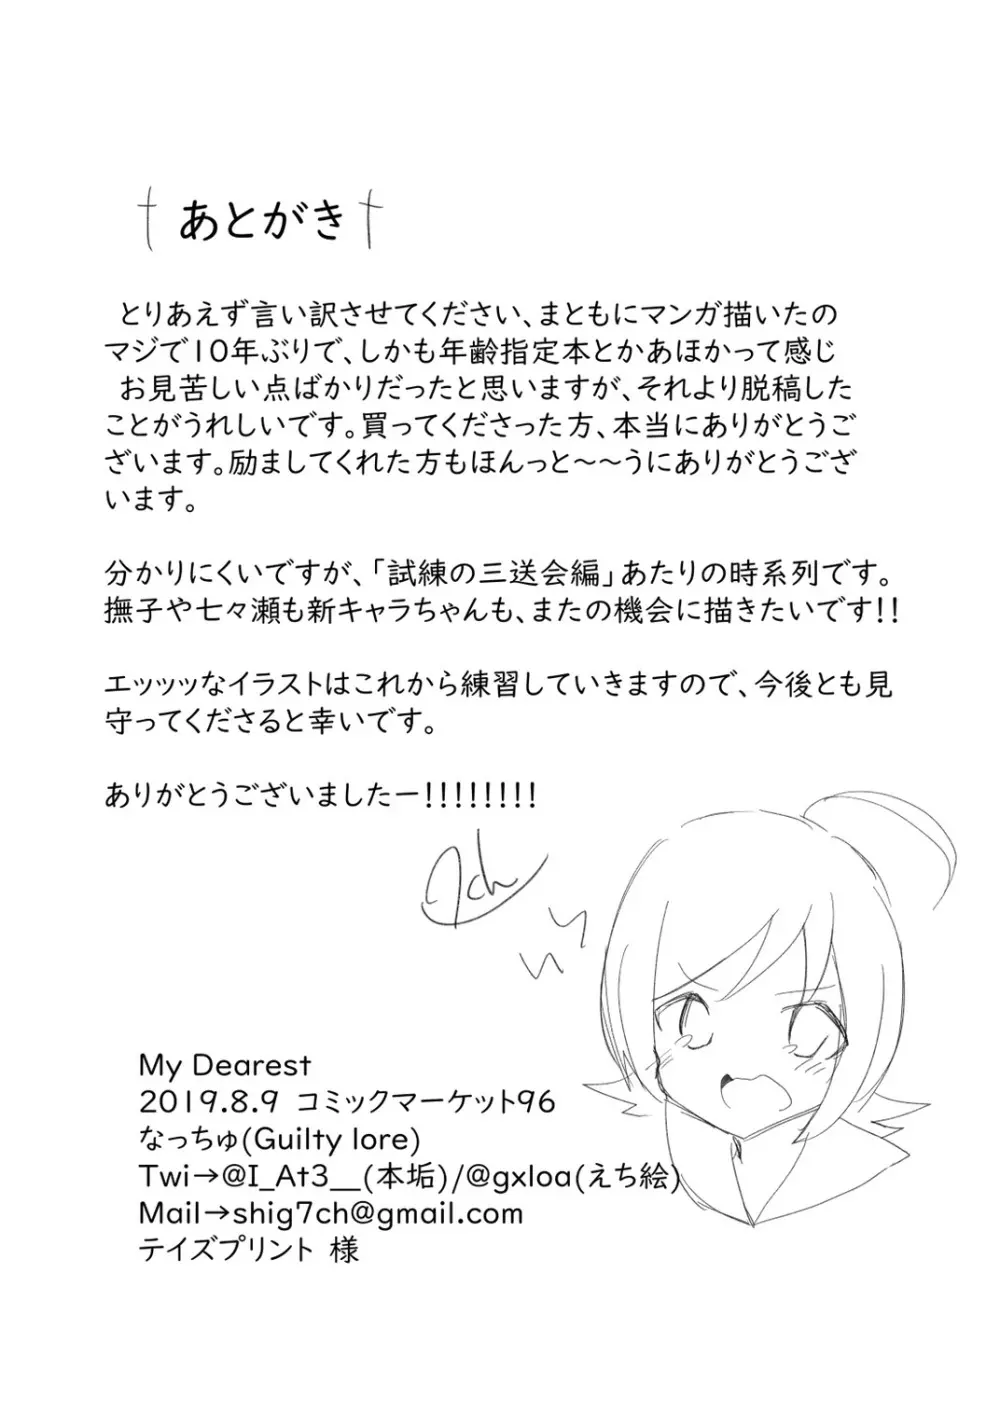 †あとがき†
とりあえず言い訳させてください、まともにマンガ描いたの
マジで10年ぶりで、しかも年齢指定本とかあほかって感じ
お見苦しい点ばかりだったと思いますが、それより脱稿した
ことがうれしいです。買ってくださった方、本当にありがとうご
ざいます。励ましてくれた方もほんっと～～うにありがとうござ
います。
分かりにくいですが、「試練の三送会編」あたりの時系列です。
撫子や七々瀬も新キャラちゃんも、またの機会に描きたいです!!
エッッッなイラストはこれから練習していきますので、今後とも見
守ってくださると幸いです。
ありがとうございましたー!!!!!!!!
7ch
My Dearest
2019.8.9 コミックマーケット96
なっちゅ(Guilty lore)
Twi→@I_At3__(本垢)/@gxloa(えち絵)
Mail→shig7ch@gmail.com
テイズプリント 様